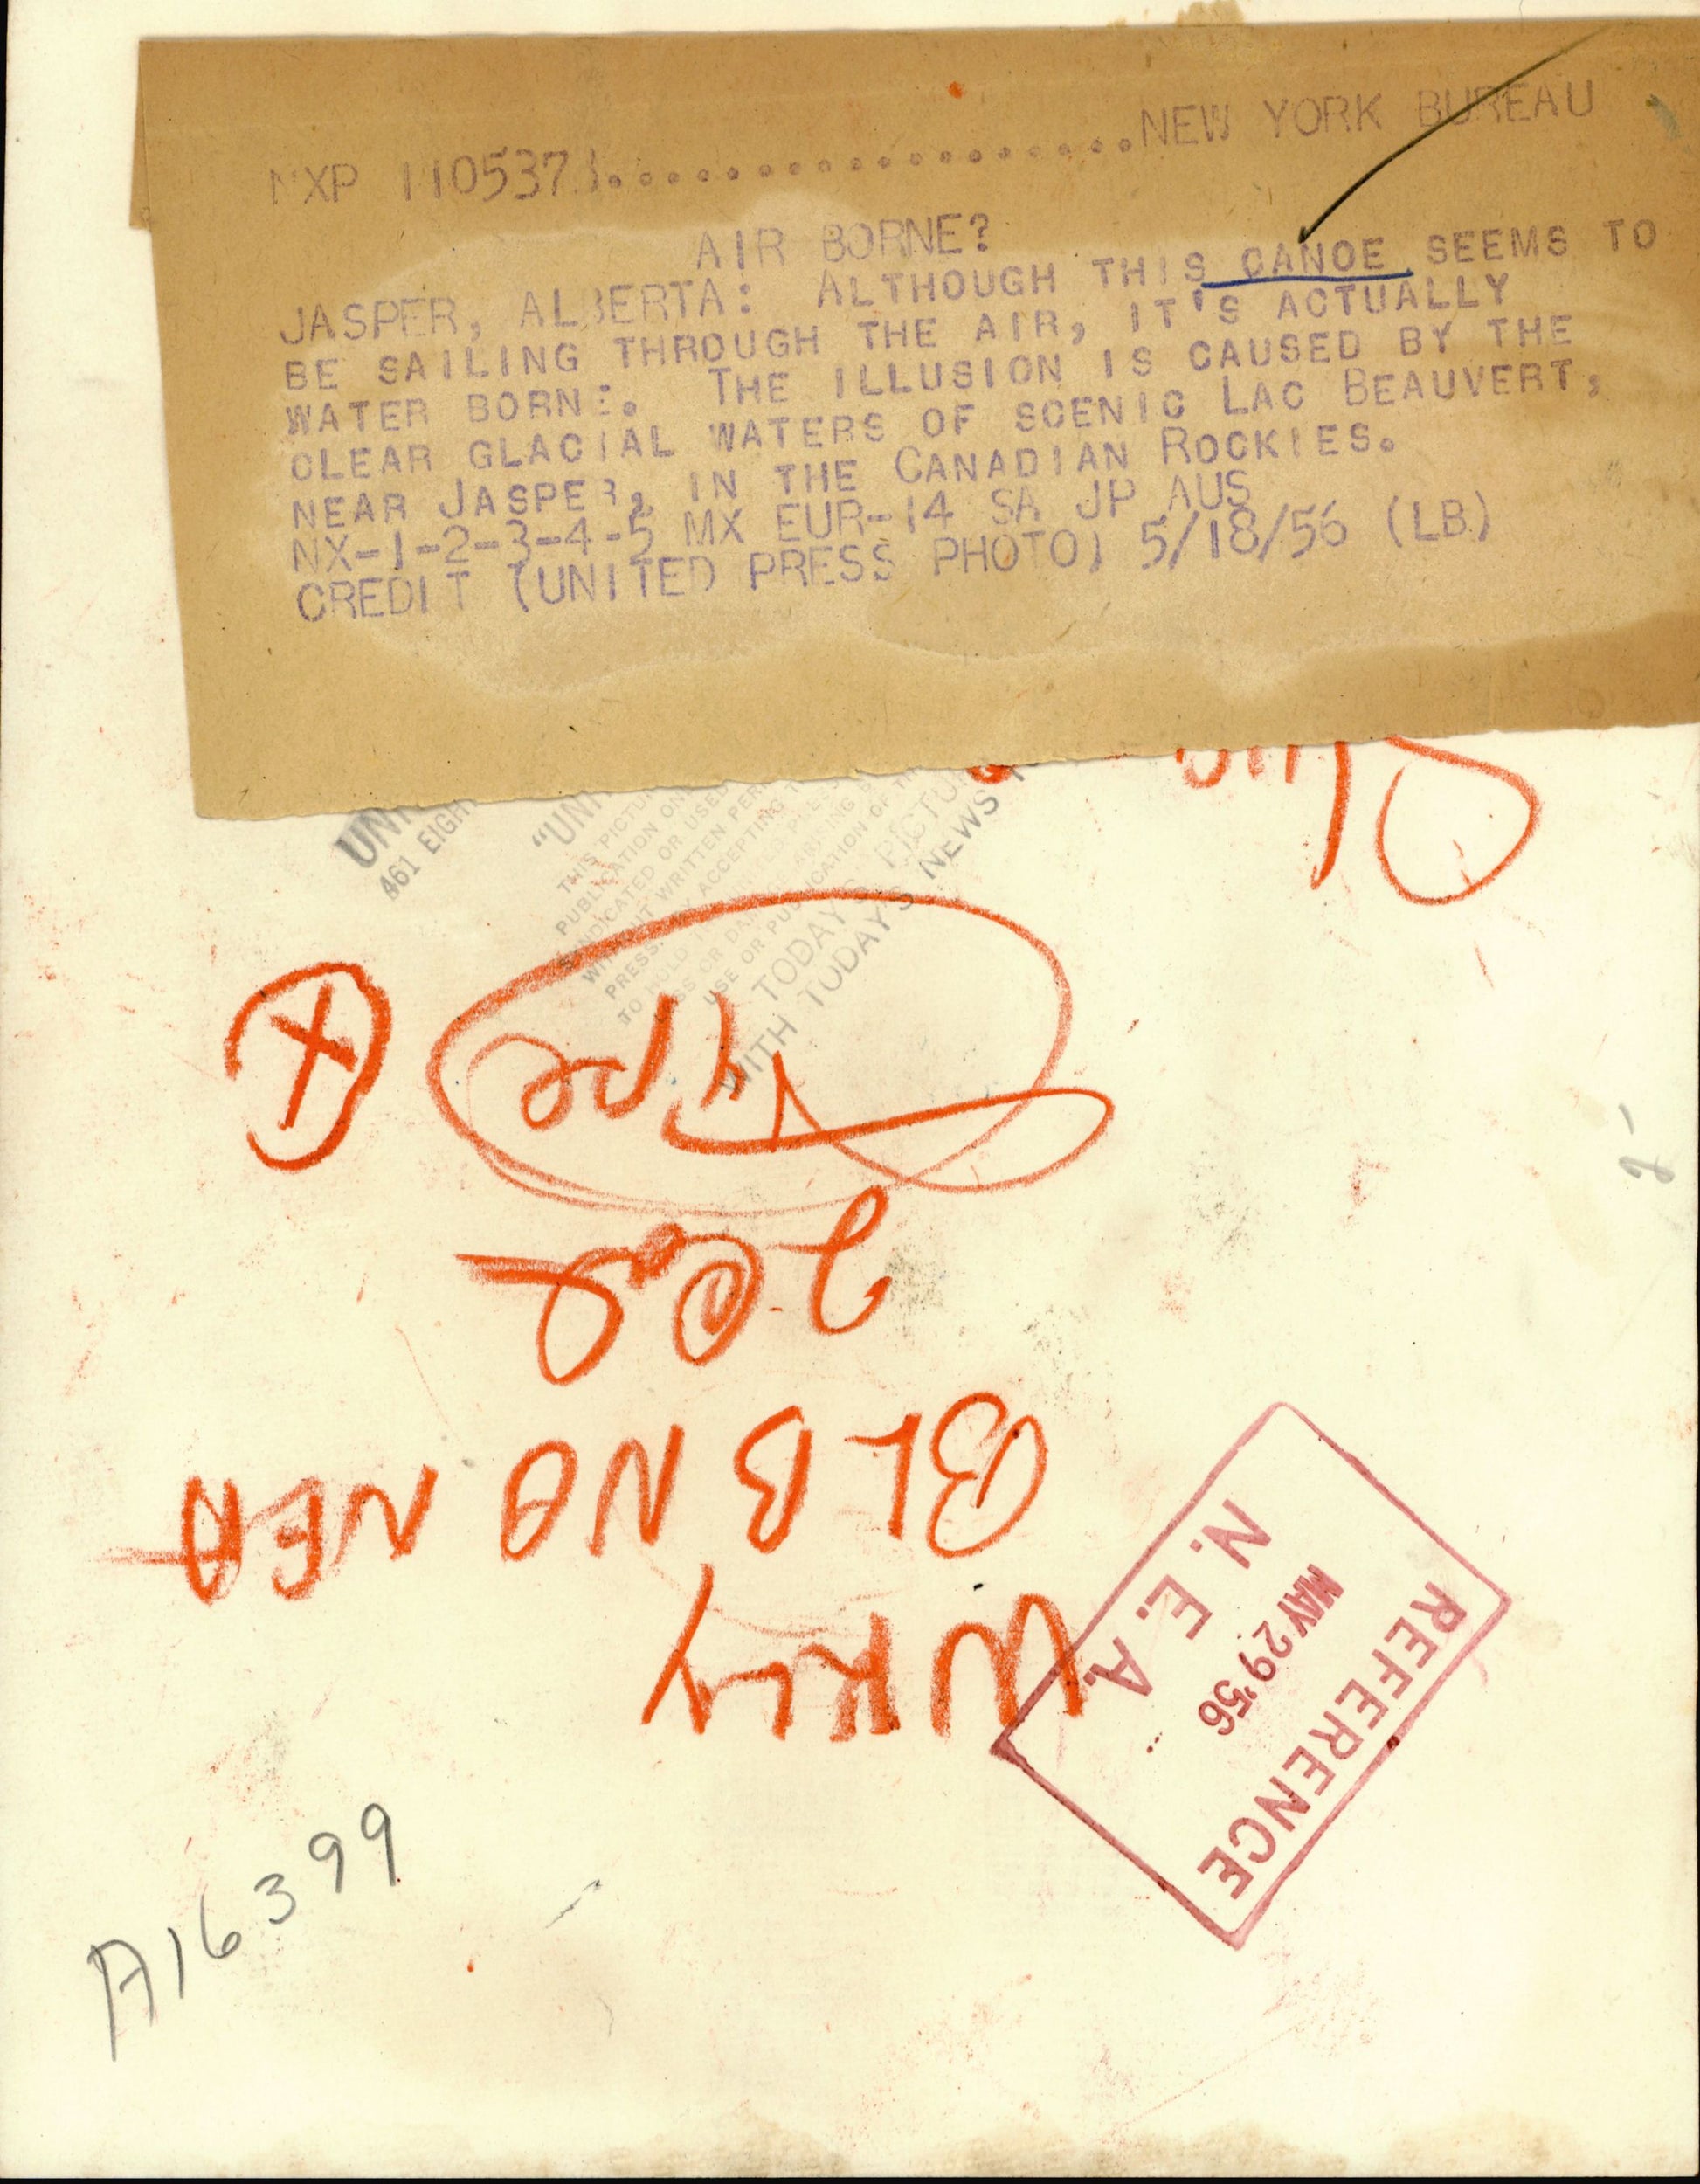 NXP 1105373...................NEW YORK BUREAU
AIR BORNE?
JASPER, ALBERTA: ALTHOUGH THIS CANOE SEEMS TO
BE SAILING THROUGH THE AIR, IT'S ACTUALLY
WATER BORNE. THE ILLUSION IS CAUSED BY THE
CLEAR GLACIAL WATERS OF SCENIC LAC BEAUVERT,
NEAR JASPER, IN THE CANADIAN ROCKIES.
NX-1-2-3-4-5 MX EUR-14 SA JP AUS
CREDIT (UNITED PRESS PHOTO) 5/18/56 (LB)
461 EIGH
"UNI
THIS PICTUR
PUBLICATION ON
SYNDICATED OR USED
WITHOUT WRITTEN PER
PRESS. BY ACCEPTING T
TO HOLD
LOSS OR DA
USE OR PUBLICATION OF T
TODAY'S PICTU
WITH TODAY'S NEWS
X
2 Col
BLB NO NEA
WKLY
N. E. A.
MAY 29 '56
REFERENCE
A16399